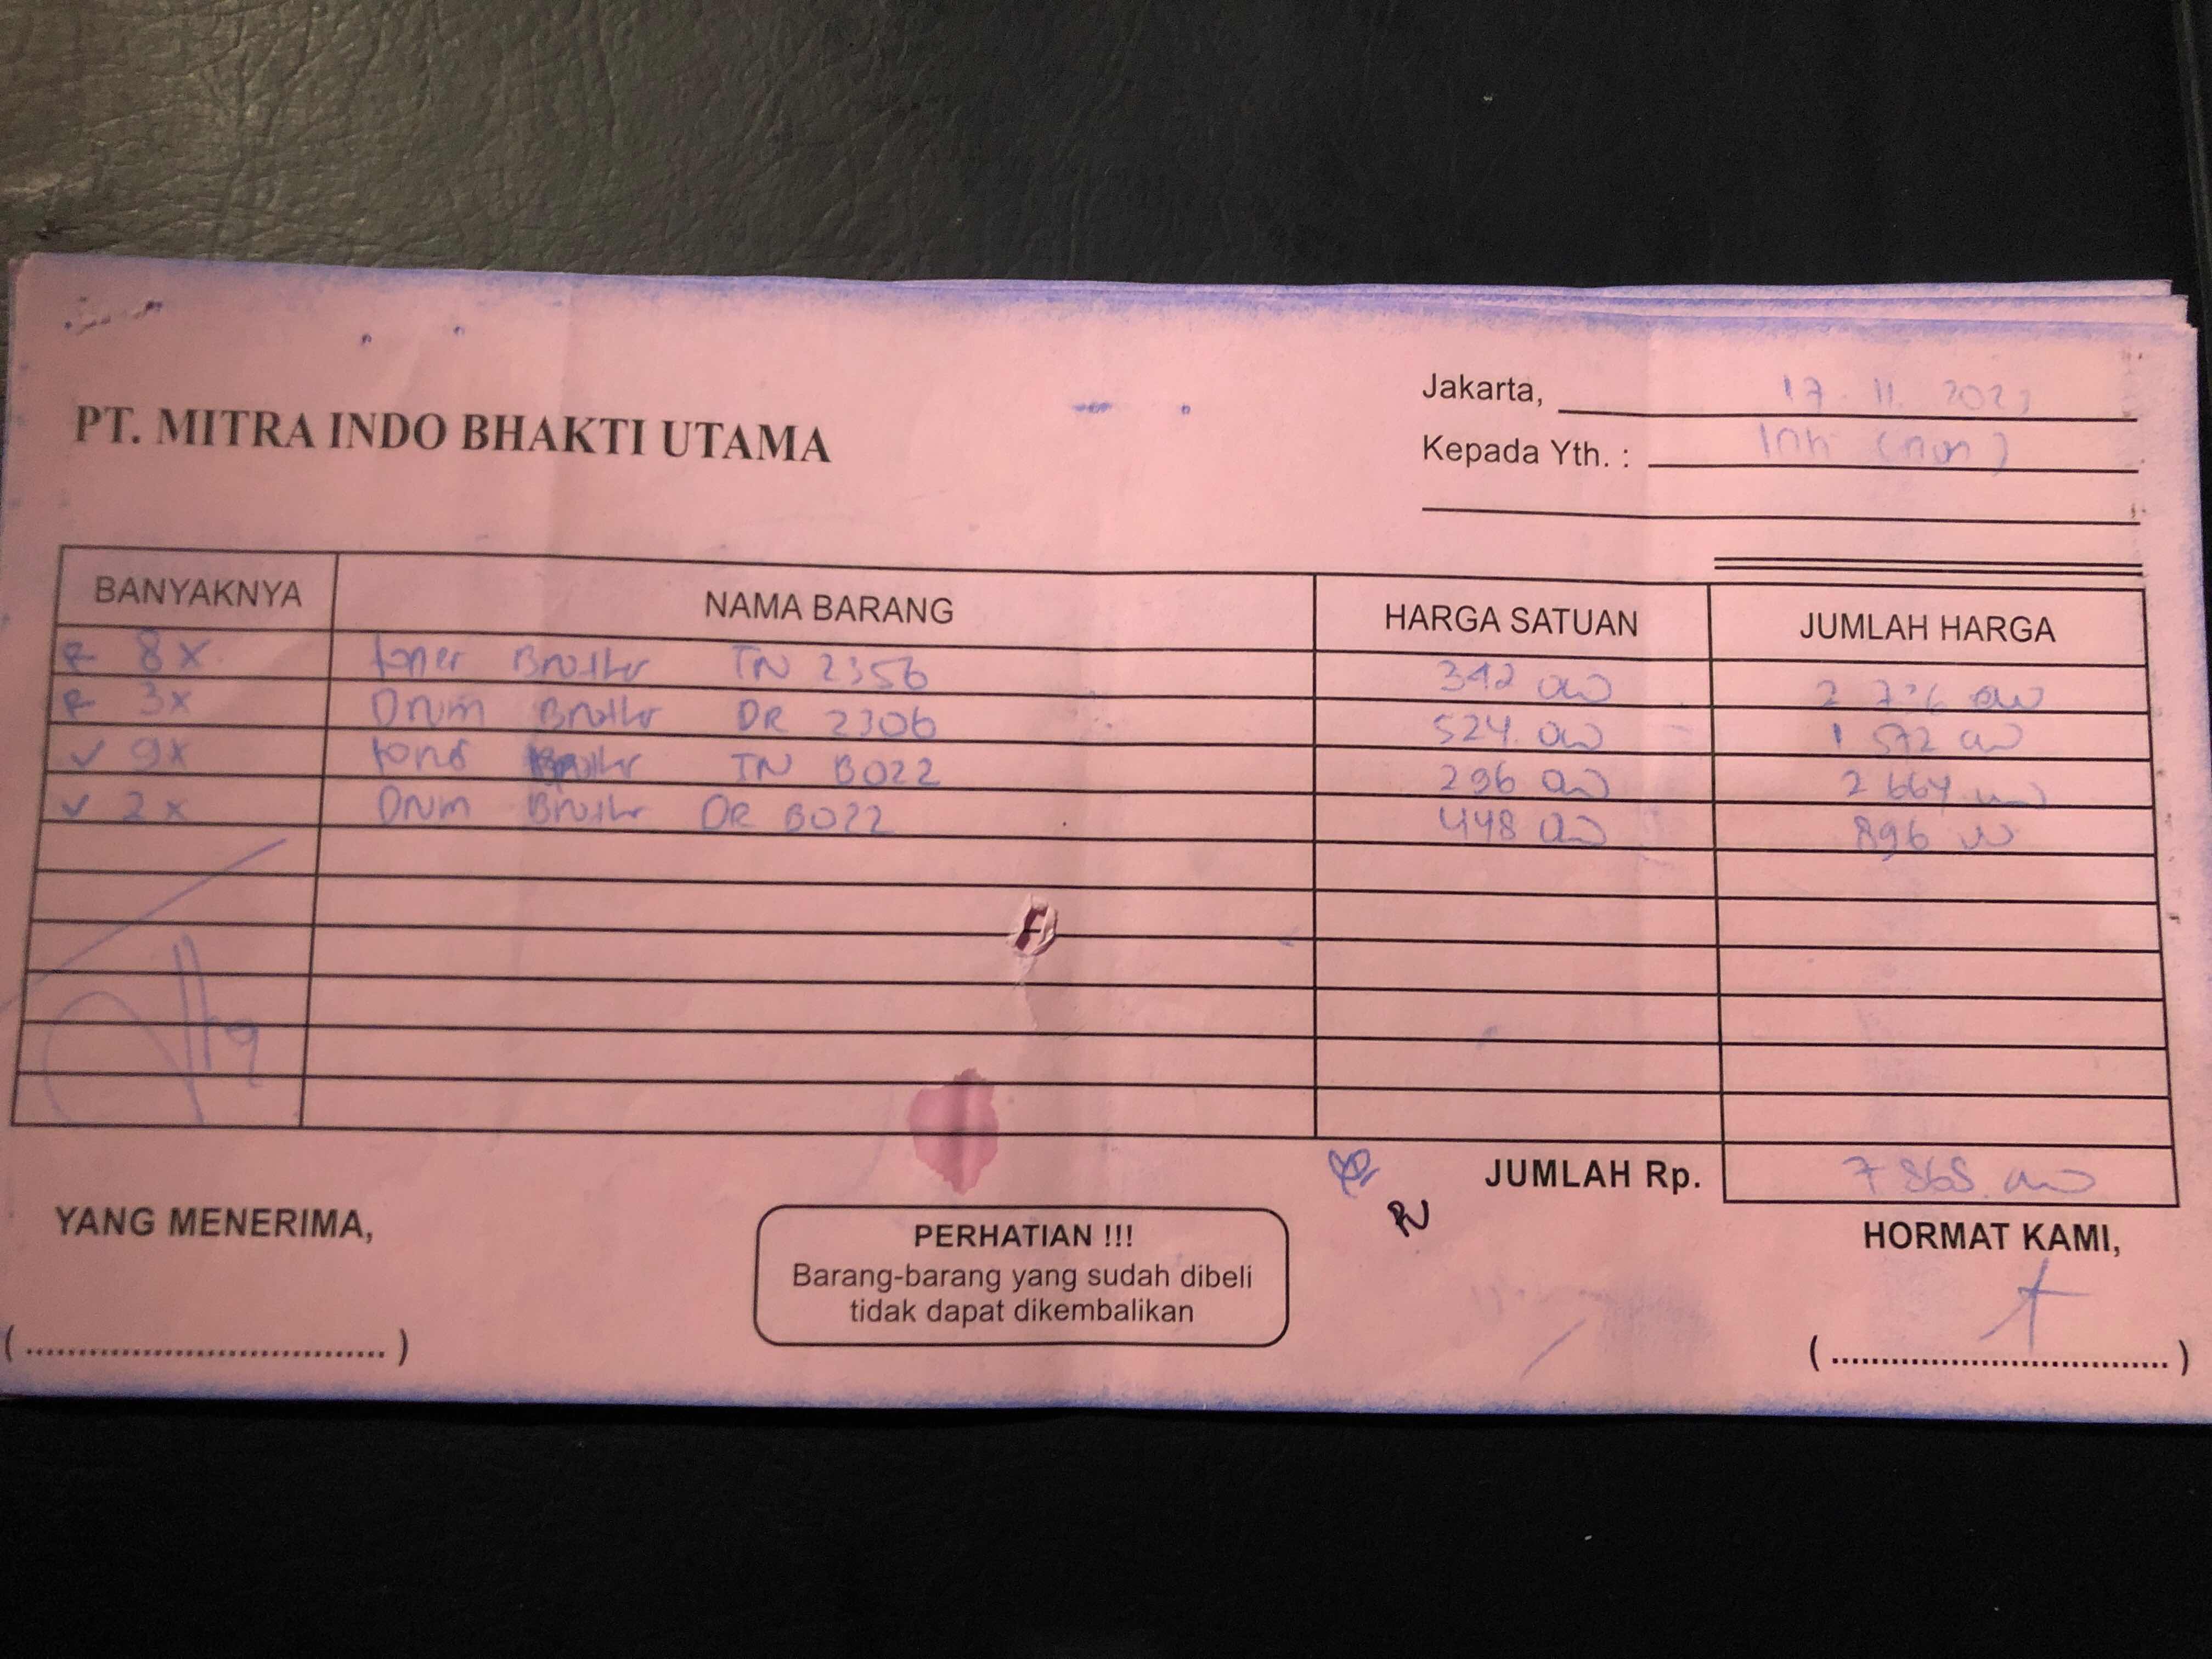 PT. MITRA INDO BHAKTI UTAMA
Jakarta, 17.11.2023
Kepada Yth. :
BANYAKNYA NAMA BARANG HARGA SATUAN JUMLAH HARGA
8x toner Brother TN 2356 342 000 2 736 000
3x Drum Brother DR 2306 524.000 1 572 000
✓ 9x toner Brother TN B022 296 000 2 664 000
✓ 2x Drum Brother DR B022 448 000 896 000
JUMLAH Rp. 7 868.000
YANG MENERIMA,
PERHATIAN !!!
Barang-barang yang sudah dibeli
tidak dapat dikembalikan
HORMAT KAMI,
(....................................)
(....................................)